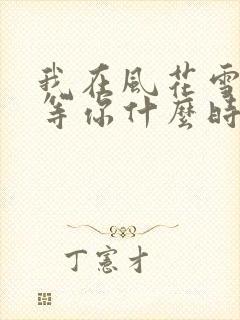 我在風花雪
等你什麼時
丁憲才